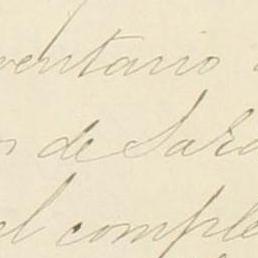 ventario
de Sara
el comple